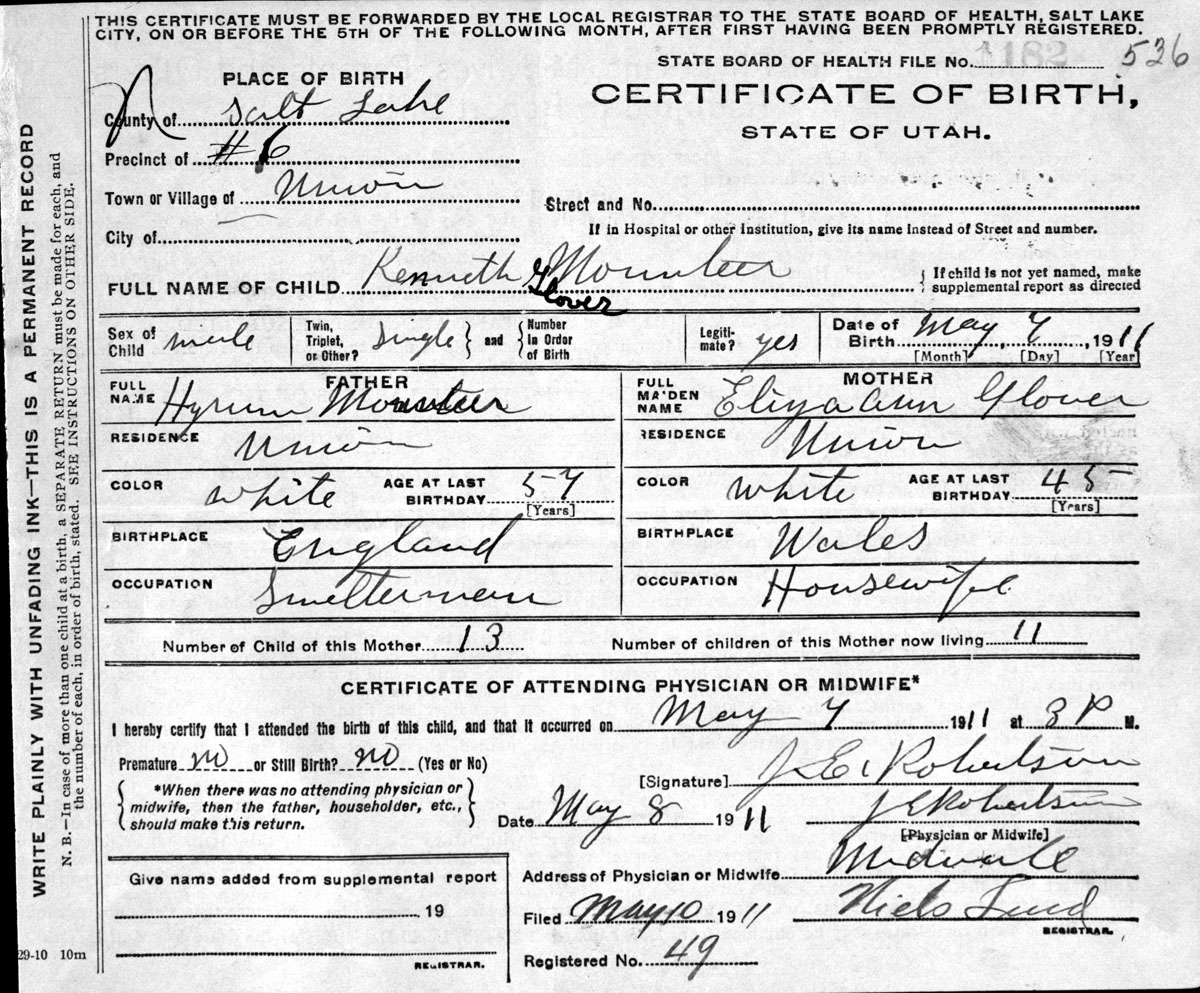 THIS CERTIFICATE MUST BE FORWARDED BY THE LOCAL REGISTRAR TO THE STATE BOARD OF HEALTH, SALT LAKE
CITY, ON OR BEFORE THE 5TH OF THE FOLLOWING MONTH, AFTER FIRST HAVING BEEN PROMPTLY REGISTERED.
STATE BOARD OF HEALTH FILE No. 1182- 536
PLACE OF BIRTH
CERTIFICATE OF BIRTH,
STATE OF UTAH.
County of Salt Lake
Precinct of #6
Town or Village of Union
Street and No.
City of
If in Hospital or other Institution, give its name instead of Street and number.
FULL NAME OF CHILD Kenneth Glover Mounteer
{ If child is not yet named, make
supplemental report as directed
Sex of Child male Twin, Triplet, or Other? Single } and { Number In Order of Birth Legiti-mate? yes Date of Birth May 7, 1911
[Month] [Day] [Year
FATHER MOTHER
FULL NAME Hyrum Mounteer FULL MAIDEN NAME Eliza Ann Glover
RESIDENCE Union RESIDENCE Union
COLOR white AGE AT LAST BIRTHDAY 57 [Years] COLOR White AGE AT LAST BIRTHDAY 45 [Years]
BIRTHPLACE England BIRTHPLACE Wales
OCCUPATION Smelterman OCCUPATION Housewife
Number of Child of this Mother 13 Number of children of this Mother now living 11
CERTIFICATE OF ATTENDING PHYSICIAN OR MIDWIFE*
I hereby certify that I attended the birth of this child, and that it occurred on May 7 1911 at 3 P M.
Premature no or Still Birth? no (Yes or No)
[Signature] J. E. Robertson
{ *When there was no attending physician or
midwife, then the father, householder, etc.,
should make this return. }
Date May 8 1911 J E Robertson
[Physician or Midwife]
Address of Physician or Midwife Midvale
Give name added from supplemental report
19
REGISTRAR.
Filed May 10 1911 Niels Lind
REGISTRAR.
Registered No. 49
29-10 10m
WRITE PLAINLY WITH UNFADING INK—THIS IS A PERMANENT RECORD
N. B.—In case of more than one child at a birth, a SEPARATE RETURN must be made for each, and
the number of each, in order of birth, stated. SEE INSTRUCTIONS ON OTHER SIDE.